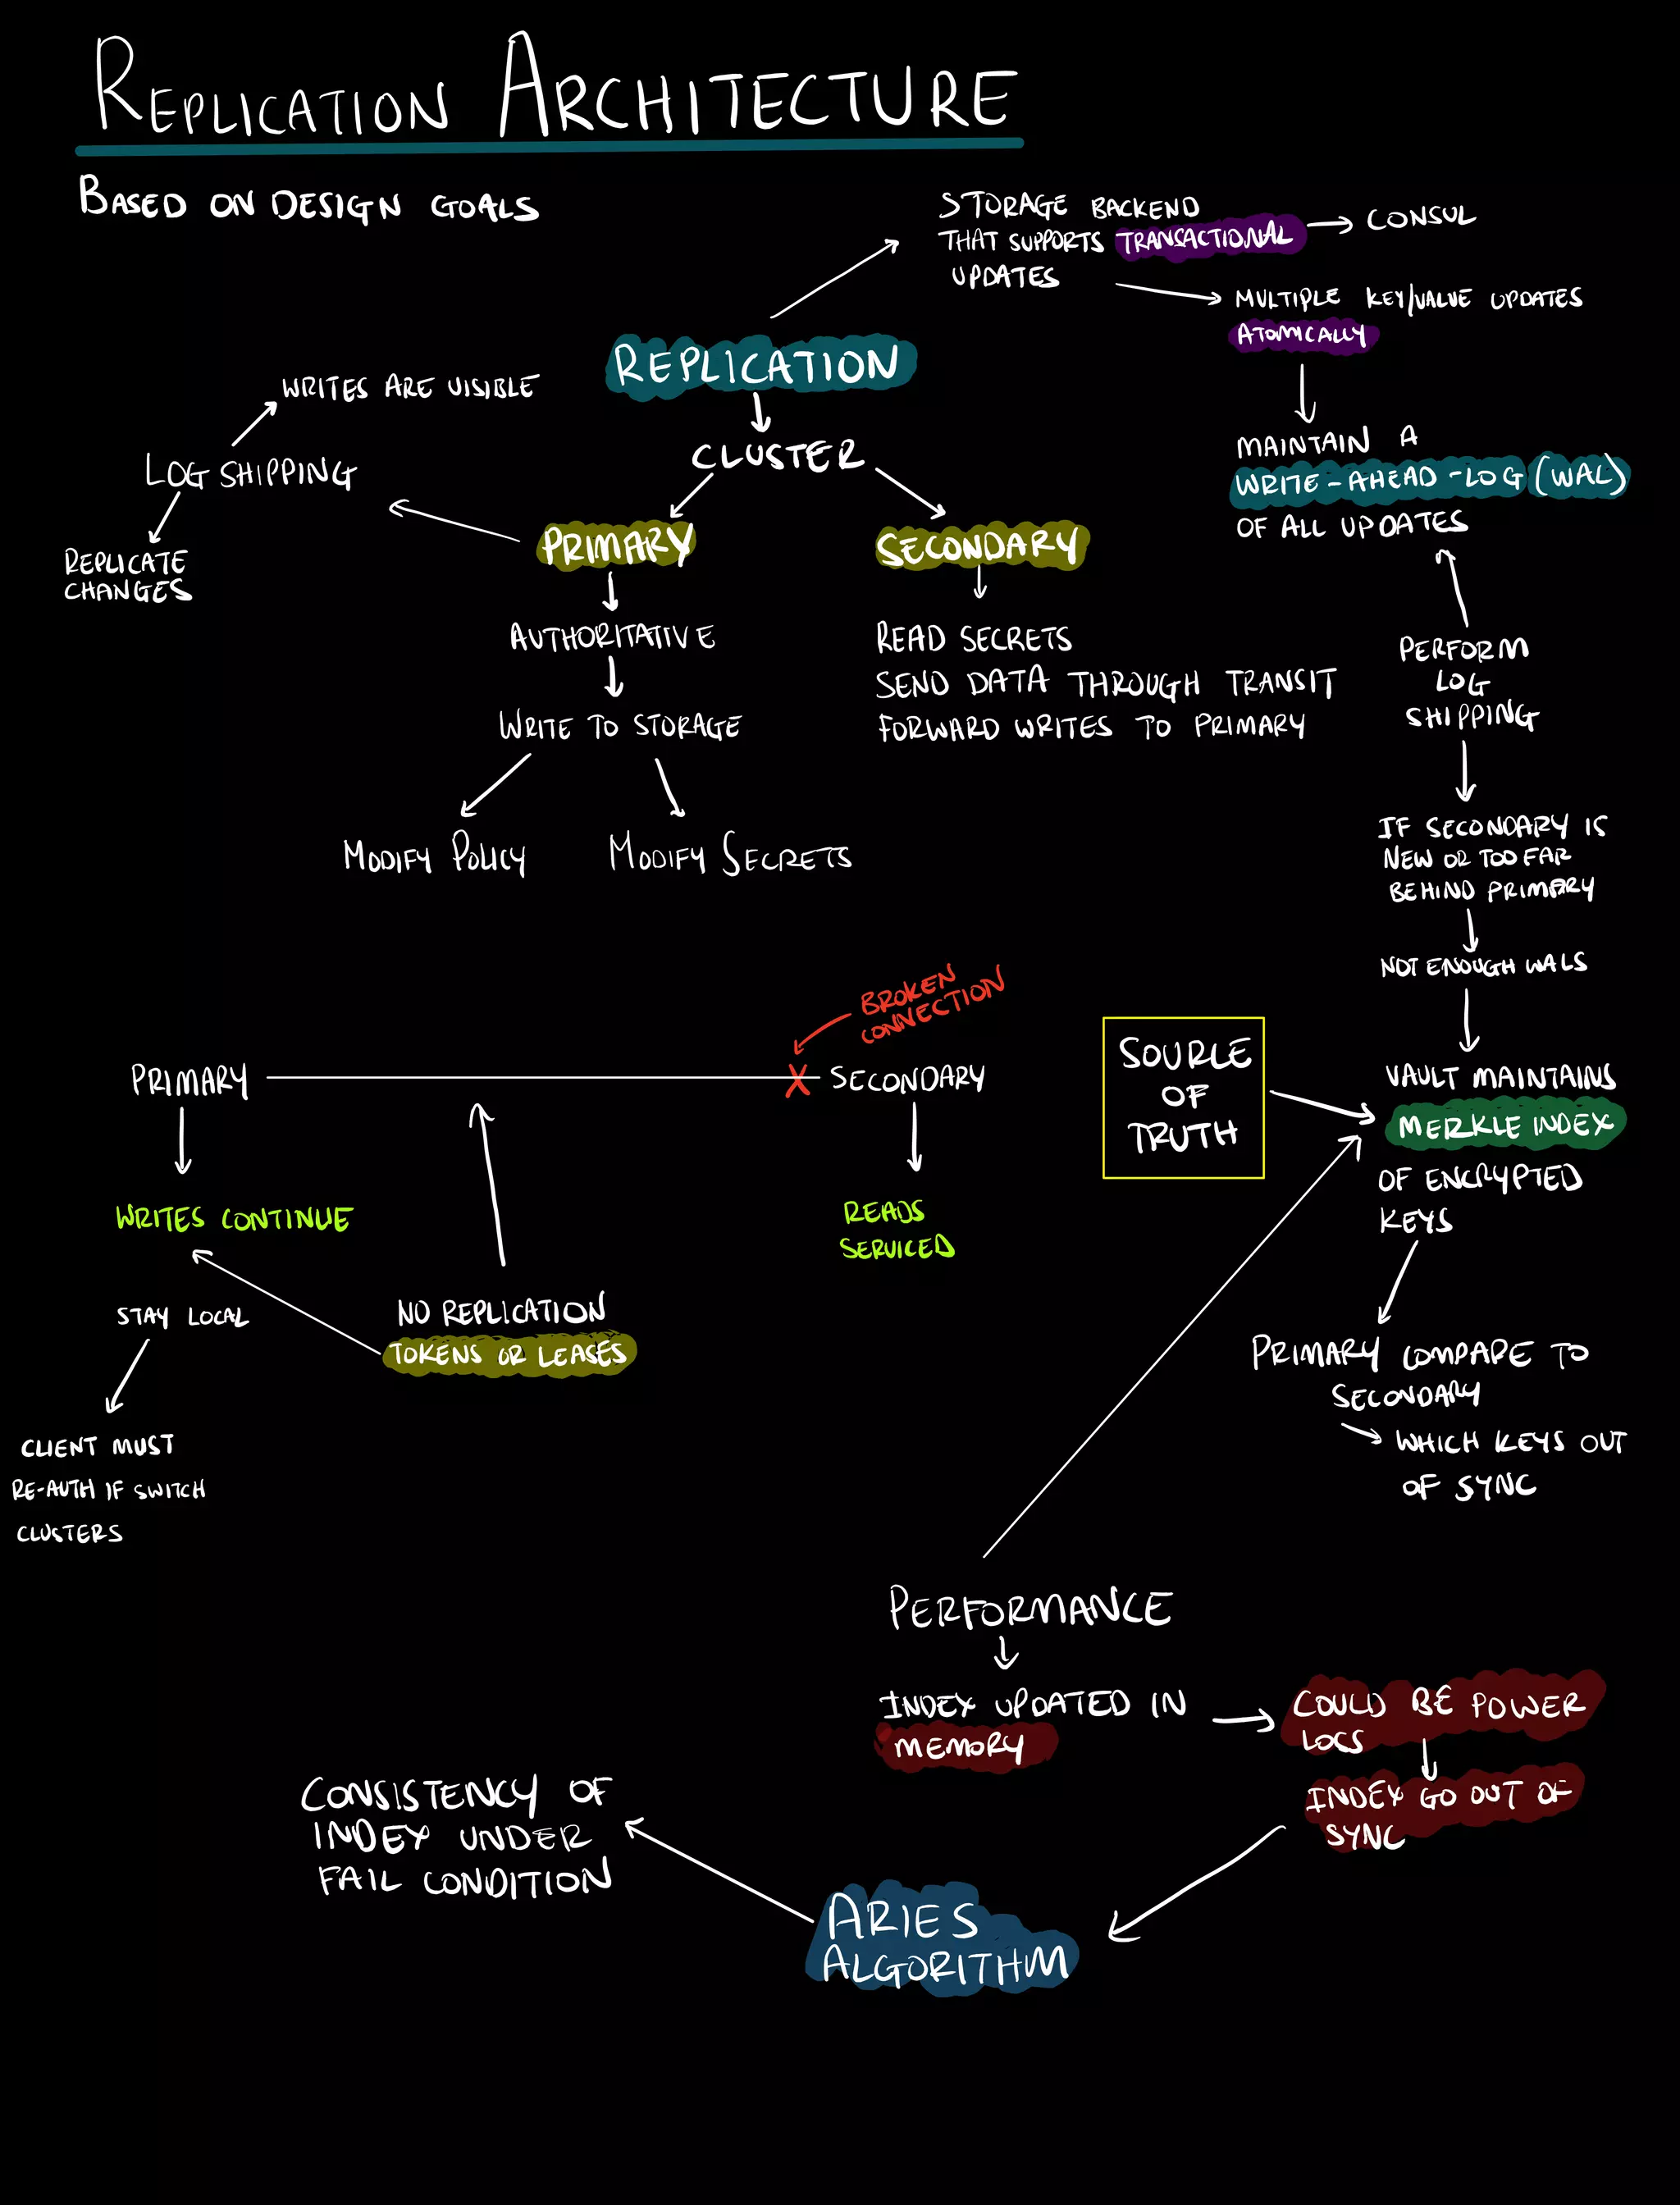 REPLICATION ARCHITECTURE
BASED ON DESIGN GOALS
STORAGE BACKEND
THAT SUPPORTS TRANSACTIONAL
UPDATES
CONSUL
MULTIPLE KEY/VALUE UPDATES
ATOMICALLY
REPLICATION
CLUSTER
WRITES ARE VISIBLE
LOG SHIPPING
REPLICATE
CHANGES
PRIMARY
SECONDARY
AUTHORITATIVE
WRITE TO STORAGE
MODIFY POLICY
MODIFY SECRETS
READ SECRETS
SEND DATA THROUGH TRANSIT
FORWARD WRITES TO PRIMARY
MAINTAIN A
WRITE-AHEAD-LOG (WAL)
OF ALL UPDATES
PERFORM
LOG
SHIPPING
IF SECONDARY IS
NEW OR TOO FAR
BEHIND PRIMARY
NOT ENOUGH WALS
VAULT MAINTAINS
MERKLE INDEX
OF ENCRYPTED
KEYS
SOURLE
OF
TRUTH
PRIMARY COMPARE TO
SECONDARY
WHICH KEYS OUT
OF SYNC
BROKEN
CONNECTION
PRIMARY
X
SECONDARY
WRITES CONTINUE
READS
SERVICED
STAY LOCAL
NO REPLICATION
TOKENS OR LEASES
CLIENT MUST
RE-AUTH IF SWITCH
CLUSTERS
PERFORMANCE
INDEX UPDATED IN
MEMORY
COULD BE POWER
LOCS
INDEX GO OUT OF
SYNC
ARIES
ALGORITHM
CONSISTENCY OF
INDEX UNDER
FAIL CONDITION